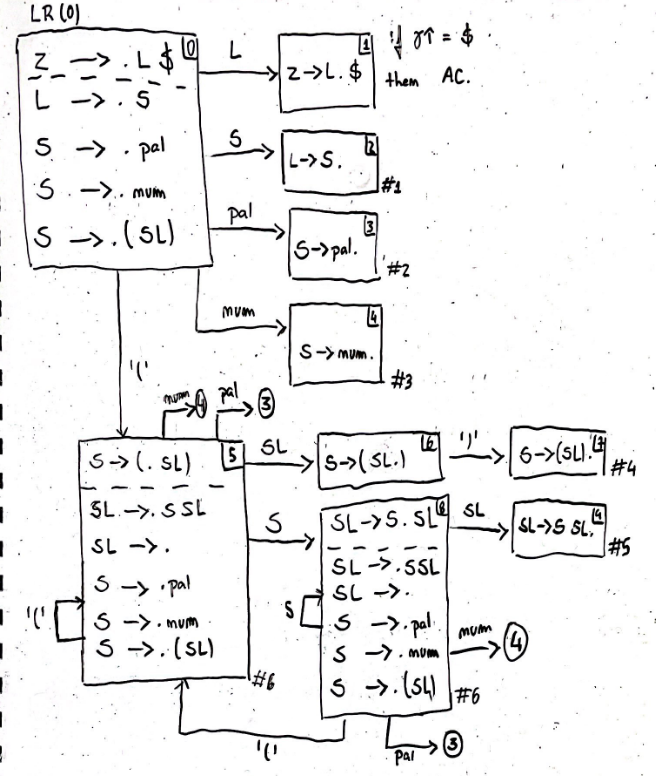 LR(0)
Z → . L $
0
L → . S
S → . pal
S → . num
S → . (SL)
L
Z → L. $
1
if γ↑ = $
then AC.
S
L → S.
2
#1
pal
S → pal.
3
#2
num
S → num.
4
#3
'('
num
4
pal
3
S → (. SL)
5
SL → . S SL
SL → .
S → . pal
S → . num
S → . (SL)
#6
'('
SL
S → (SL.)
6
')'
S → (SL).
7
#4
S
SL → S. SL
8
SL → . SSL
SL → .
S → . pal
S → . num
S → . (SL)
#6
S
SL
SL → S SL.
9
#5
num
4
'('
pal
3